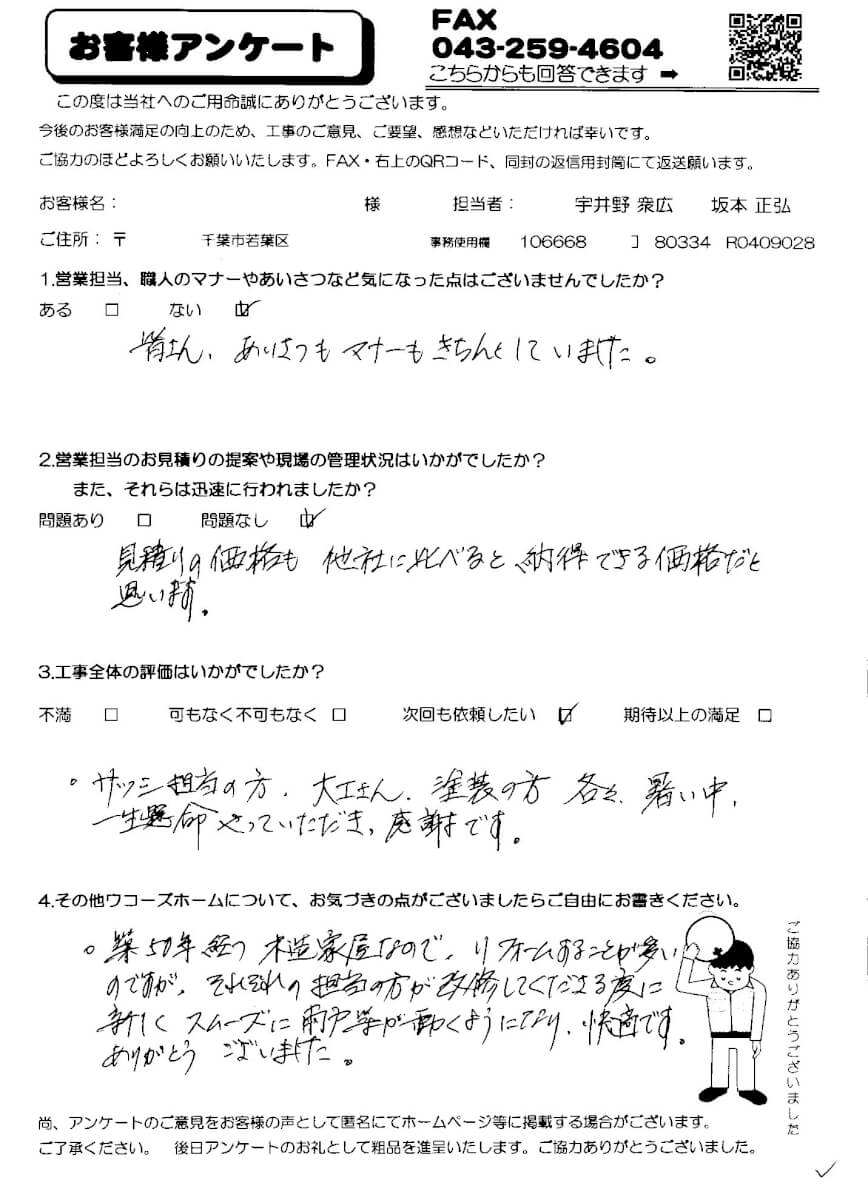 お客様アンケート
FAX
043-259-4604
こちらからも回答できます ➡
この度は当社へのご用命誠にありがとうございます。
今後のお客様満足の向上のため、工事のご意見、ご要望、感想などいただければ幸いです。
ご協力のほどよろしくお願いいたします。FAX・右上のQRコード、同封の返信用封筒にて返送願います。
お客様名： 様 担当者： 宇井野 衆広 坂本 正弘
ご住所：〒 千葉市若葉区 事務使用欄 106668 80334 R0409028
1.営業担当、職人のマナーやあいさつなど気になった点はございませんでしたか？
ある □ ない ☑
皆さん、あいさつもマナーもきちんとしていました。
2.営業担当のお見積りの提案や現場の管理状況はいかがでしたか？
また、それらは迅速に行われましたか？
問題あり □ 問題なし ☑
見積りの価格も他社に比べると、納得できる価格だと
思います。
3.工事全体の評価はいかがでしたか？
不満 □ 可もなく不可もなく □ 次回も依頼したい ☑ 期待以上の満足 □
。サッシ担当の方、大工さん、塗装の方各々、暑い中、
一生懸命やっていただき、感謝です。
4.その他ワコーズホームについて、お気づきの点がございましたらご自由にお書きください。
。築50年経つ木造家屋なので、リフォームすることが多い
のですが、それぞれの担当の方が改修してくださる度に
新しくスムーズに雨戸等が動くようになり、快適です。
ありがとうございました。
ご協力ありがとうございました
尚、アンケートのご意見をお客様の声として匿名にてホームページ等に掲載する場合がございます。
ご了承ください。 後日アンケートのお礼として粗品を進呈いたします。ご協力ありがとうございました。